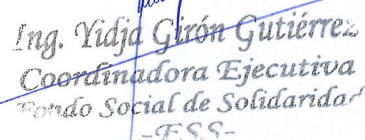 Ing. Yidja Girón Gutiérrez
Coordinadora Ejecutiva
Fondo Social de Solidaridad
-FSS-